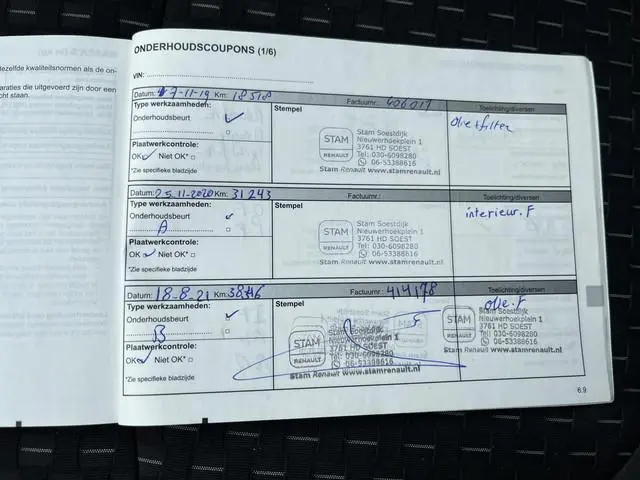 ezelfde kwaliteitsnormen als de on-
araties die uitgevoerd zijn door een
cht staan.
ONDERHOUDSCOUPONS (1/6)
VIN:
Datum: 7-11-19 Km: 18518 Factuurnr.: 406017 Toelichting/diversen
Type werkzaamheden: Stempel
Onderhoudsbeurt ✓ olie+filter
STAM RENAULT
Stam Soestdijk
Nieuwerhoekplein 1
3761 HD SOEST
Tel: 030-6098280
06-53388616
Stam Renault www.stamrenault.nl
Plaatwerkcontrole:
OK ✓ Niet OK* □
*Zie specifieke bladzijde
Datum: 25-11-2020 Km: 31243 Factuurnr.: Toelichting/diversen
Type werkzaamheden: Stempel
Onderhoudsbeurt ✓ interieur.F
A □
STAM RENAULT
Stam Soestdijk
Nieuwerhoekplein 1
3761 HD SOEST
Tel: 030-6098280
06-53388616
Stam Renault www.stamrenault.nl
Plaatwerkcontrole:
OK ✓ Niet OK* □
*Zie specifieke bladzijde
Datum: 18-8-21 Km: Factuurnr.: 414178 Toelichting/diversen
Type werkzaamheden: Stempel olie.F
Onderhoudsbeurt ✓
B □
STAM RENAULT
Stam Soestdijk
Nieuwerhoekplein 1
3761 HD SOEST
Tel: 030-6098280
06-53388616
Stam Renault www.stamrenault.nl
STAM RENAULT
Stam Soestdijk
Nieuwerhoekplein 1
3761 HD SOEST
Tel: 030-6098280
06-53388616
Stam Renault www.stamrenault.nl
Plaatwerkcontrole:
OK ✓ Niet OK* □
*Zie specifieke bladzijde
6.9